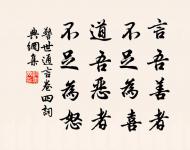 言吾善者
不足為喜
道吾惡者
不足為怒
警世通言卷四詞
典網集